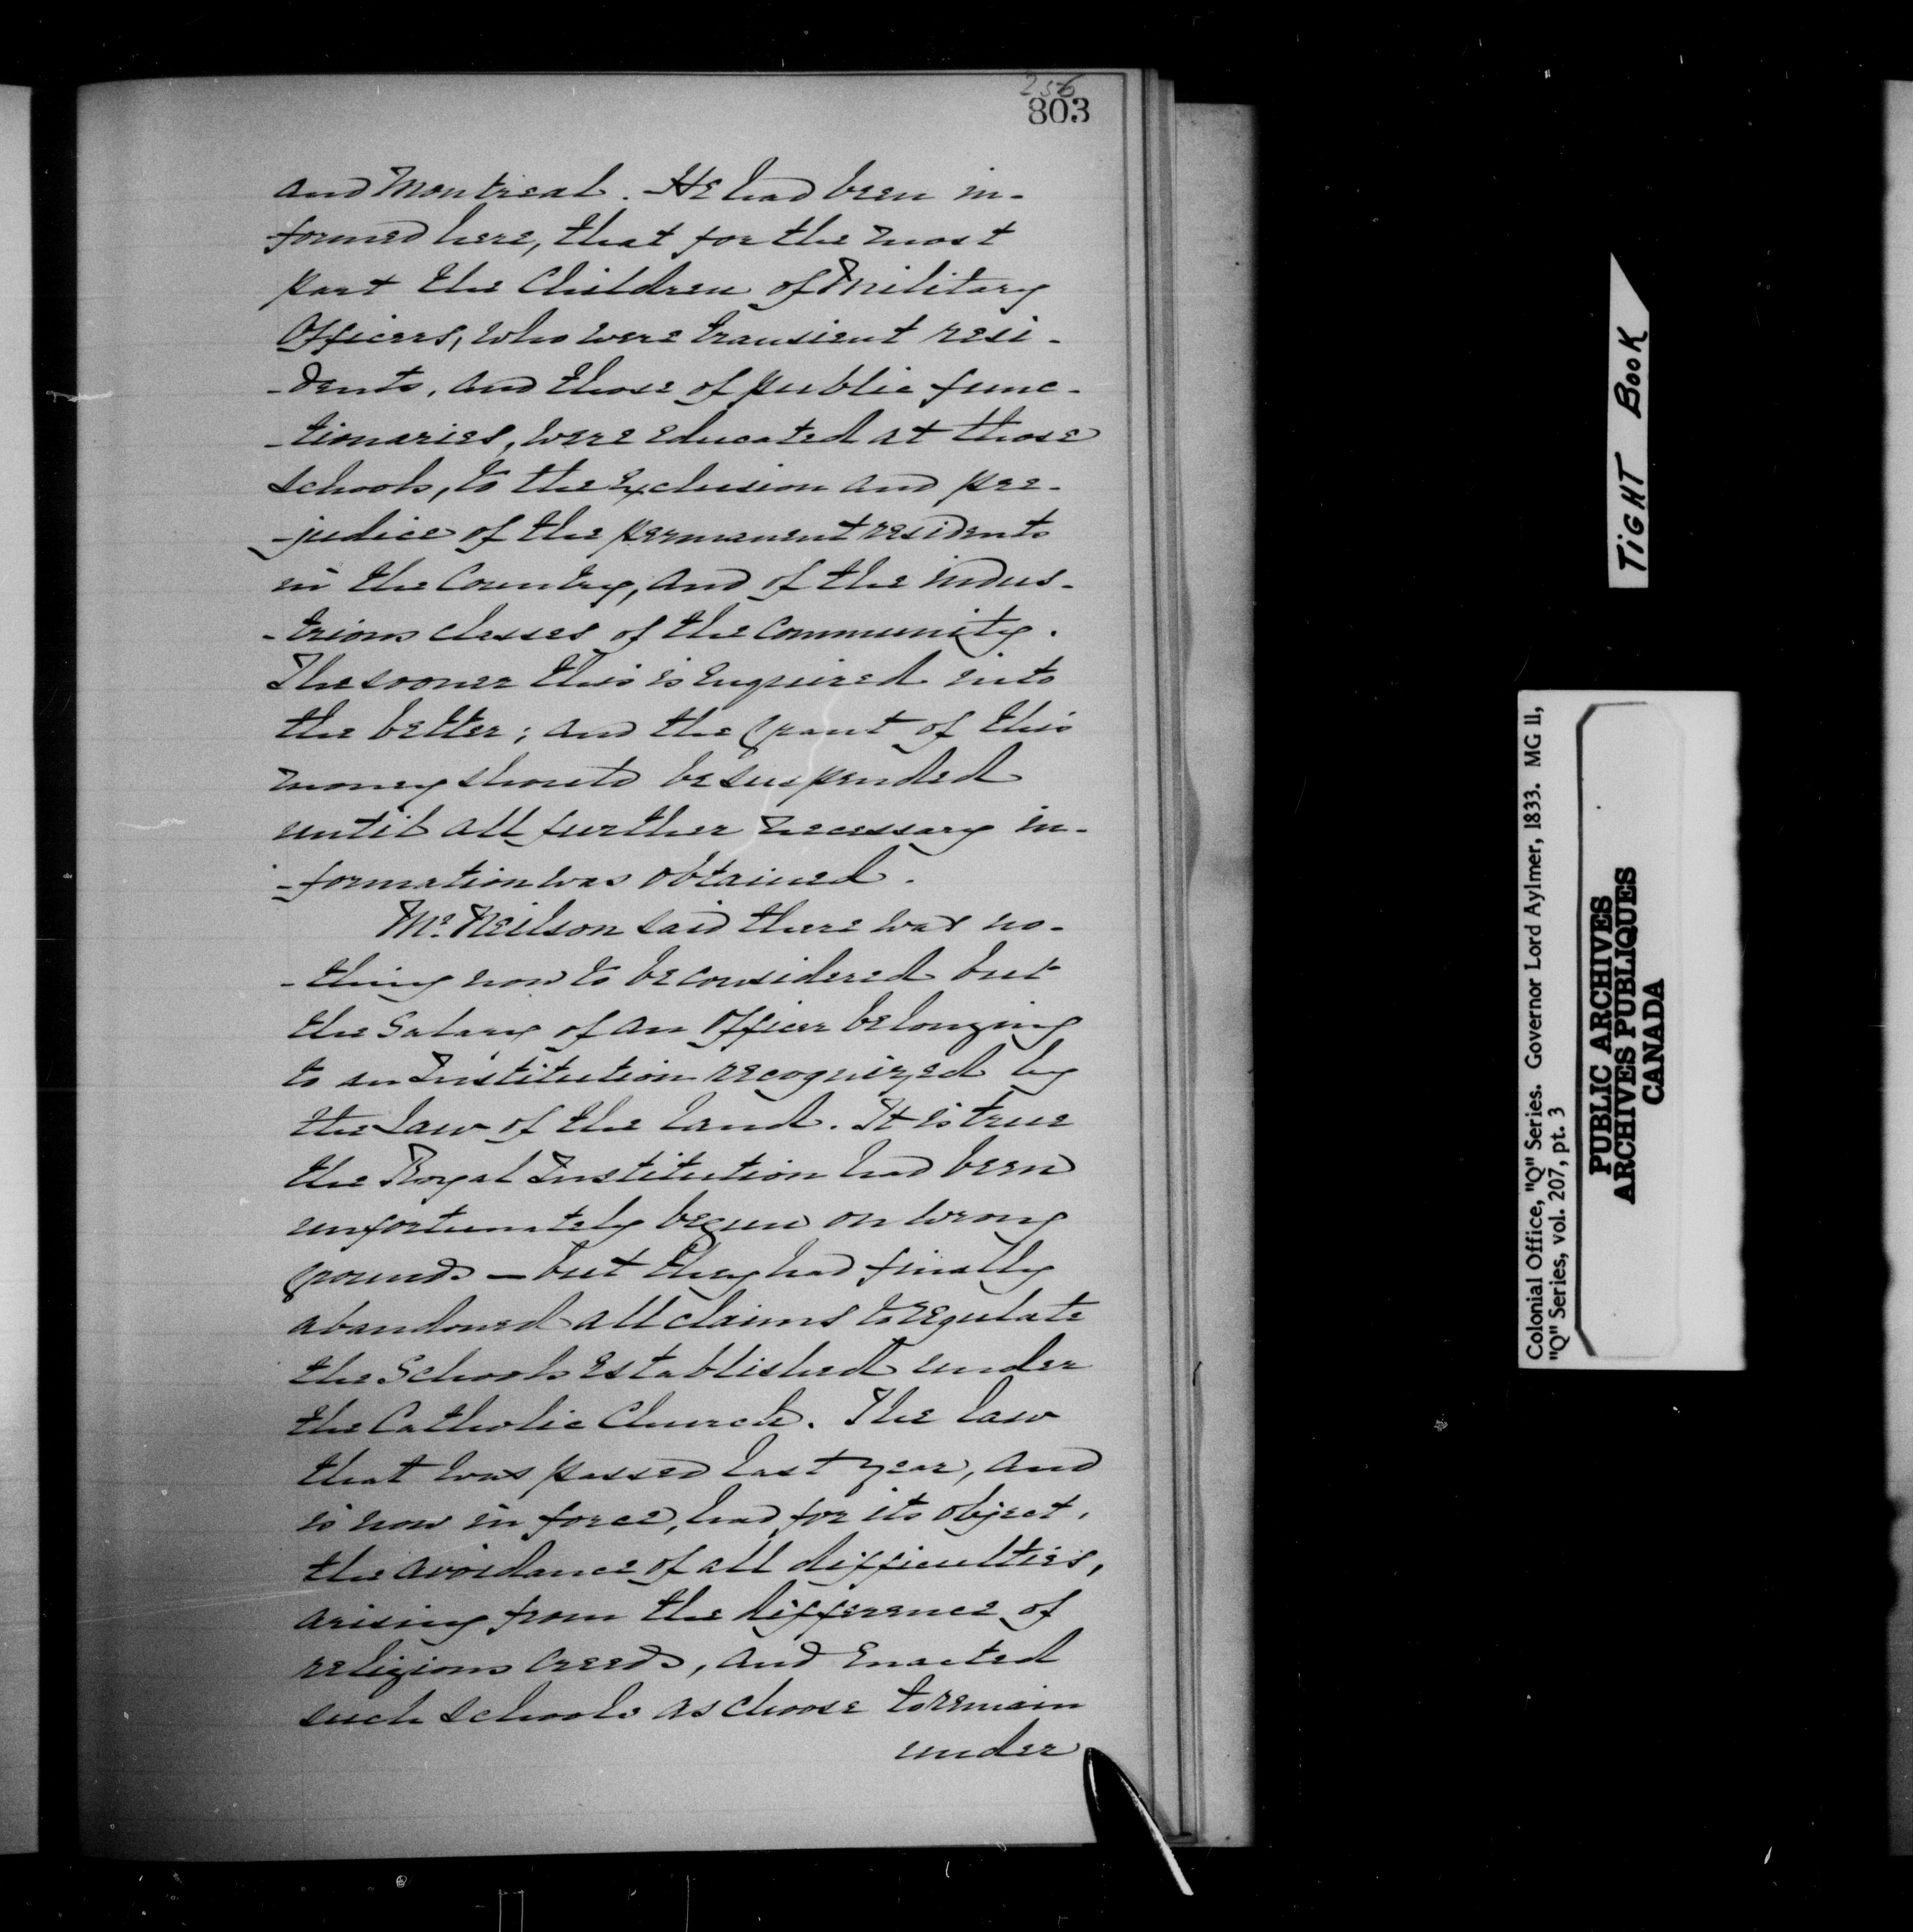 256
803
and Montreal. He had been in-
-formed here, that for the most
part the Children of Military
Officers, who were transient resi-
-dents, and those of public func-
-tionaries, were educated at those
schools, to the exclusion and pre-
-judice of the permanent residents
in the Country, and of the indus-
-trious classes of the Community.
The sooner this is enquired into
the better; and the grant of this
money should be suspended
until all further necessary in-
-formation was obtained.
Mr. Neilson said there was no-
-thing now to be considered but
the Salary of an Officer belonging
to an Institution recognized by
the Law of the land. It is true
the Royal Institution had been
unfortunately begun on wrong
grounds — but they had finally
abandoned all claims to regulate
the Schools established under
the Catholic Church. The law
that was passed last year, and
is now in force, had for its object,
the avoidance of all difficulties,
arising from the difference of
religious creeds, and enacted
such schools as choose to remain
under
TIGHT BOOK
Colonial Office, "Q" Series. Governor Lord Aylmer, 1833. MG 11,
"Q" Series, vol. 207, pt. 3
PUBLIC ARCHIVES
ARCHIVES PUBLIQUES
CANADA